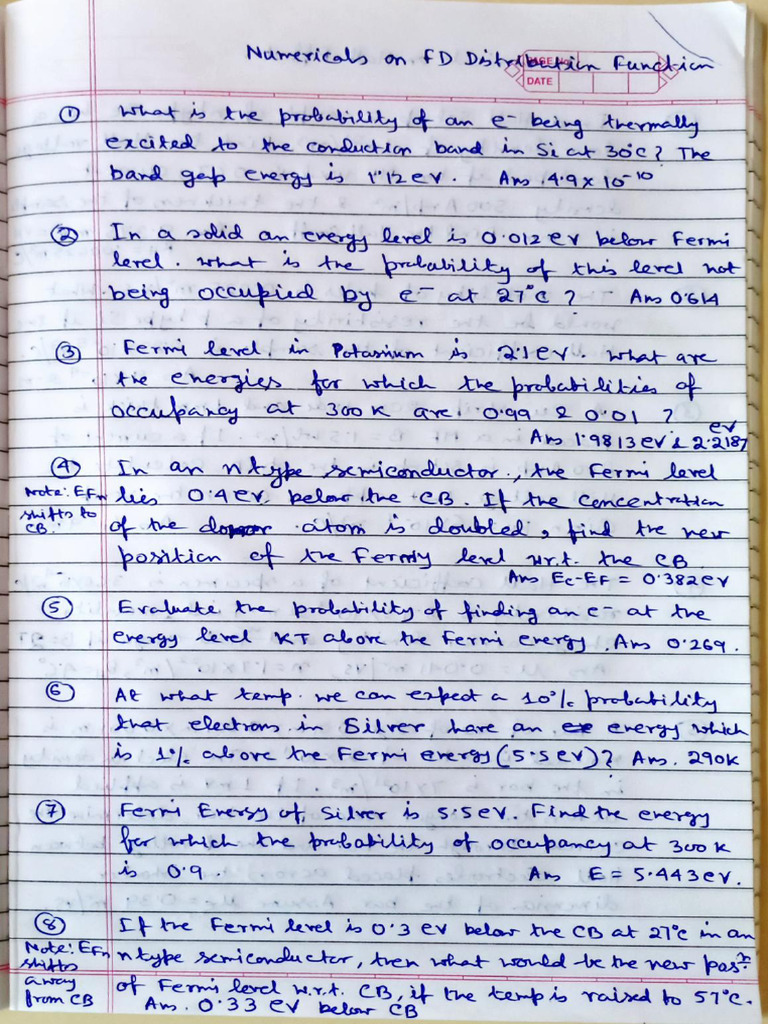 Numericals on FD Distribution Function
PAGE NO.
DATE
① What is the probability of an e⁻ being thermally
excited to the conduction band in Si at 30°C? The
band gap energy is 1.12 eV. Ans. 4.9 x 10⁻¹⁰
② In a solid an energy level is 0.012 eV below Fermi
level. What is the probability of this level not
being occupied by e⁻ at 27°C ? Ans 0.614
③ Fermi level in Potassium is 2.1 eV. What are
the energies for which the probabilities of
occupancy at 300 K are 0.99 & 0.01 ?
Ans 1.9813 eV & 2.2187 eV
④ In an n type semiconductor, the Fermi level
Note: EFn
shifts to
CB.
lies 0.4 eV below the CB. If the concentration
of the donor atom is doubled, find the new
position of the Fermly level w.r.t. the CB.
Ans Ec-EF = 0.382 eV
⑤ Evaluate the probability of finding an e⁻ at the
energy level KT above the Fermi energy. Ans 0.269.
⑥ At what temp. we can expect a 10% probability
that electrons in Silver have an energy which
is 1% above the Fermi energy (5.5 eV)? Ans. 290K
⑦ Fermi Energy of Silver is 5.5 eV. Find the energy
for which the probability of occupancy at 300 K
is 0.9. Ans E = 5.443 eV.
⑧ If the Fermi level is 0.3 eV below the CB at 27°C in an
Note: EFn
shifts
away
from CB
n type semiconductor, then what would be the new posⁿ
of Fermi level w.r.t. CB, if the temp is raised to 57°C.
Ans. 0.33 eV below CB